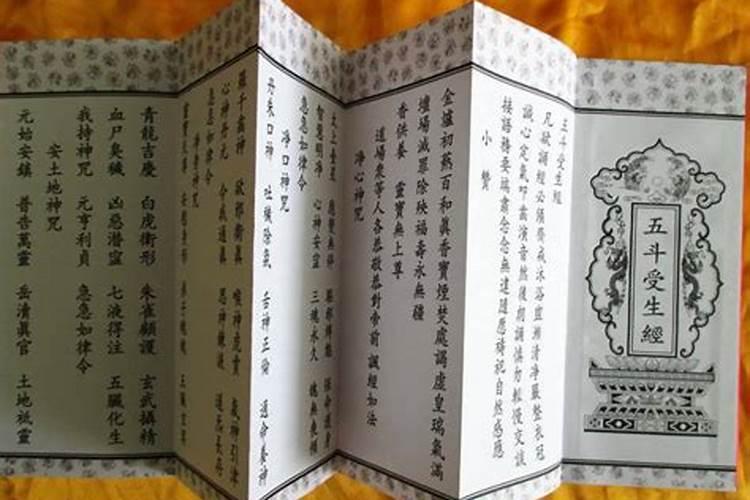 五斗受生經
五斗受生經
凡欲誦經必須齊莊沐浴盥漱清淨嚴整衣冠
誠心定氣叩齒演音然後朗誦慎勿輕慢交談
接語務要端肅念念無違隨應禱祀自然感應
小贊
金爐初爇百和眞香寶煙焚處謁虛皇瑞氣滿
壇場滅罪除殃福壽永無疆
香供養 靈寶無上尊
道場衆等人各恭敬恭對帝前 誦經如法
淨心神咒
太上台星 應變無停 驅邪縛魅 保命護身
智慧明淨 心神安寧 三魂永久 魄無喪傾
急急如律令
淨口神咒
丹朱口神 吐穢除氛 舌神正倫 通命養神
羅千齒神 卻邪衛眞 喉神虎賁 氣神引津
心神丹元 令我通眞 思神鍊液 道炁長存
急急如律令
淨身神咒
靈寶天尊 安慰身形 弟子魂魄 五臟玄冥
青龍吉慶 白虎衛形 朱雀顧護 玄武攝精
血尸臭穢 凶惡潛寧 七液得注 五臟化生
我持神咒 元亨利貞 急急如律令
安土地神咒
元始安鎮 普告萬靈 岳瀆眞官 土地祗靈